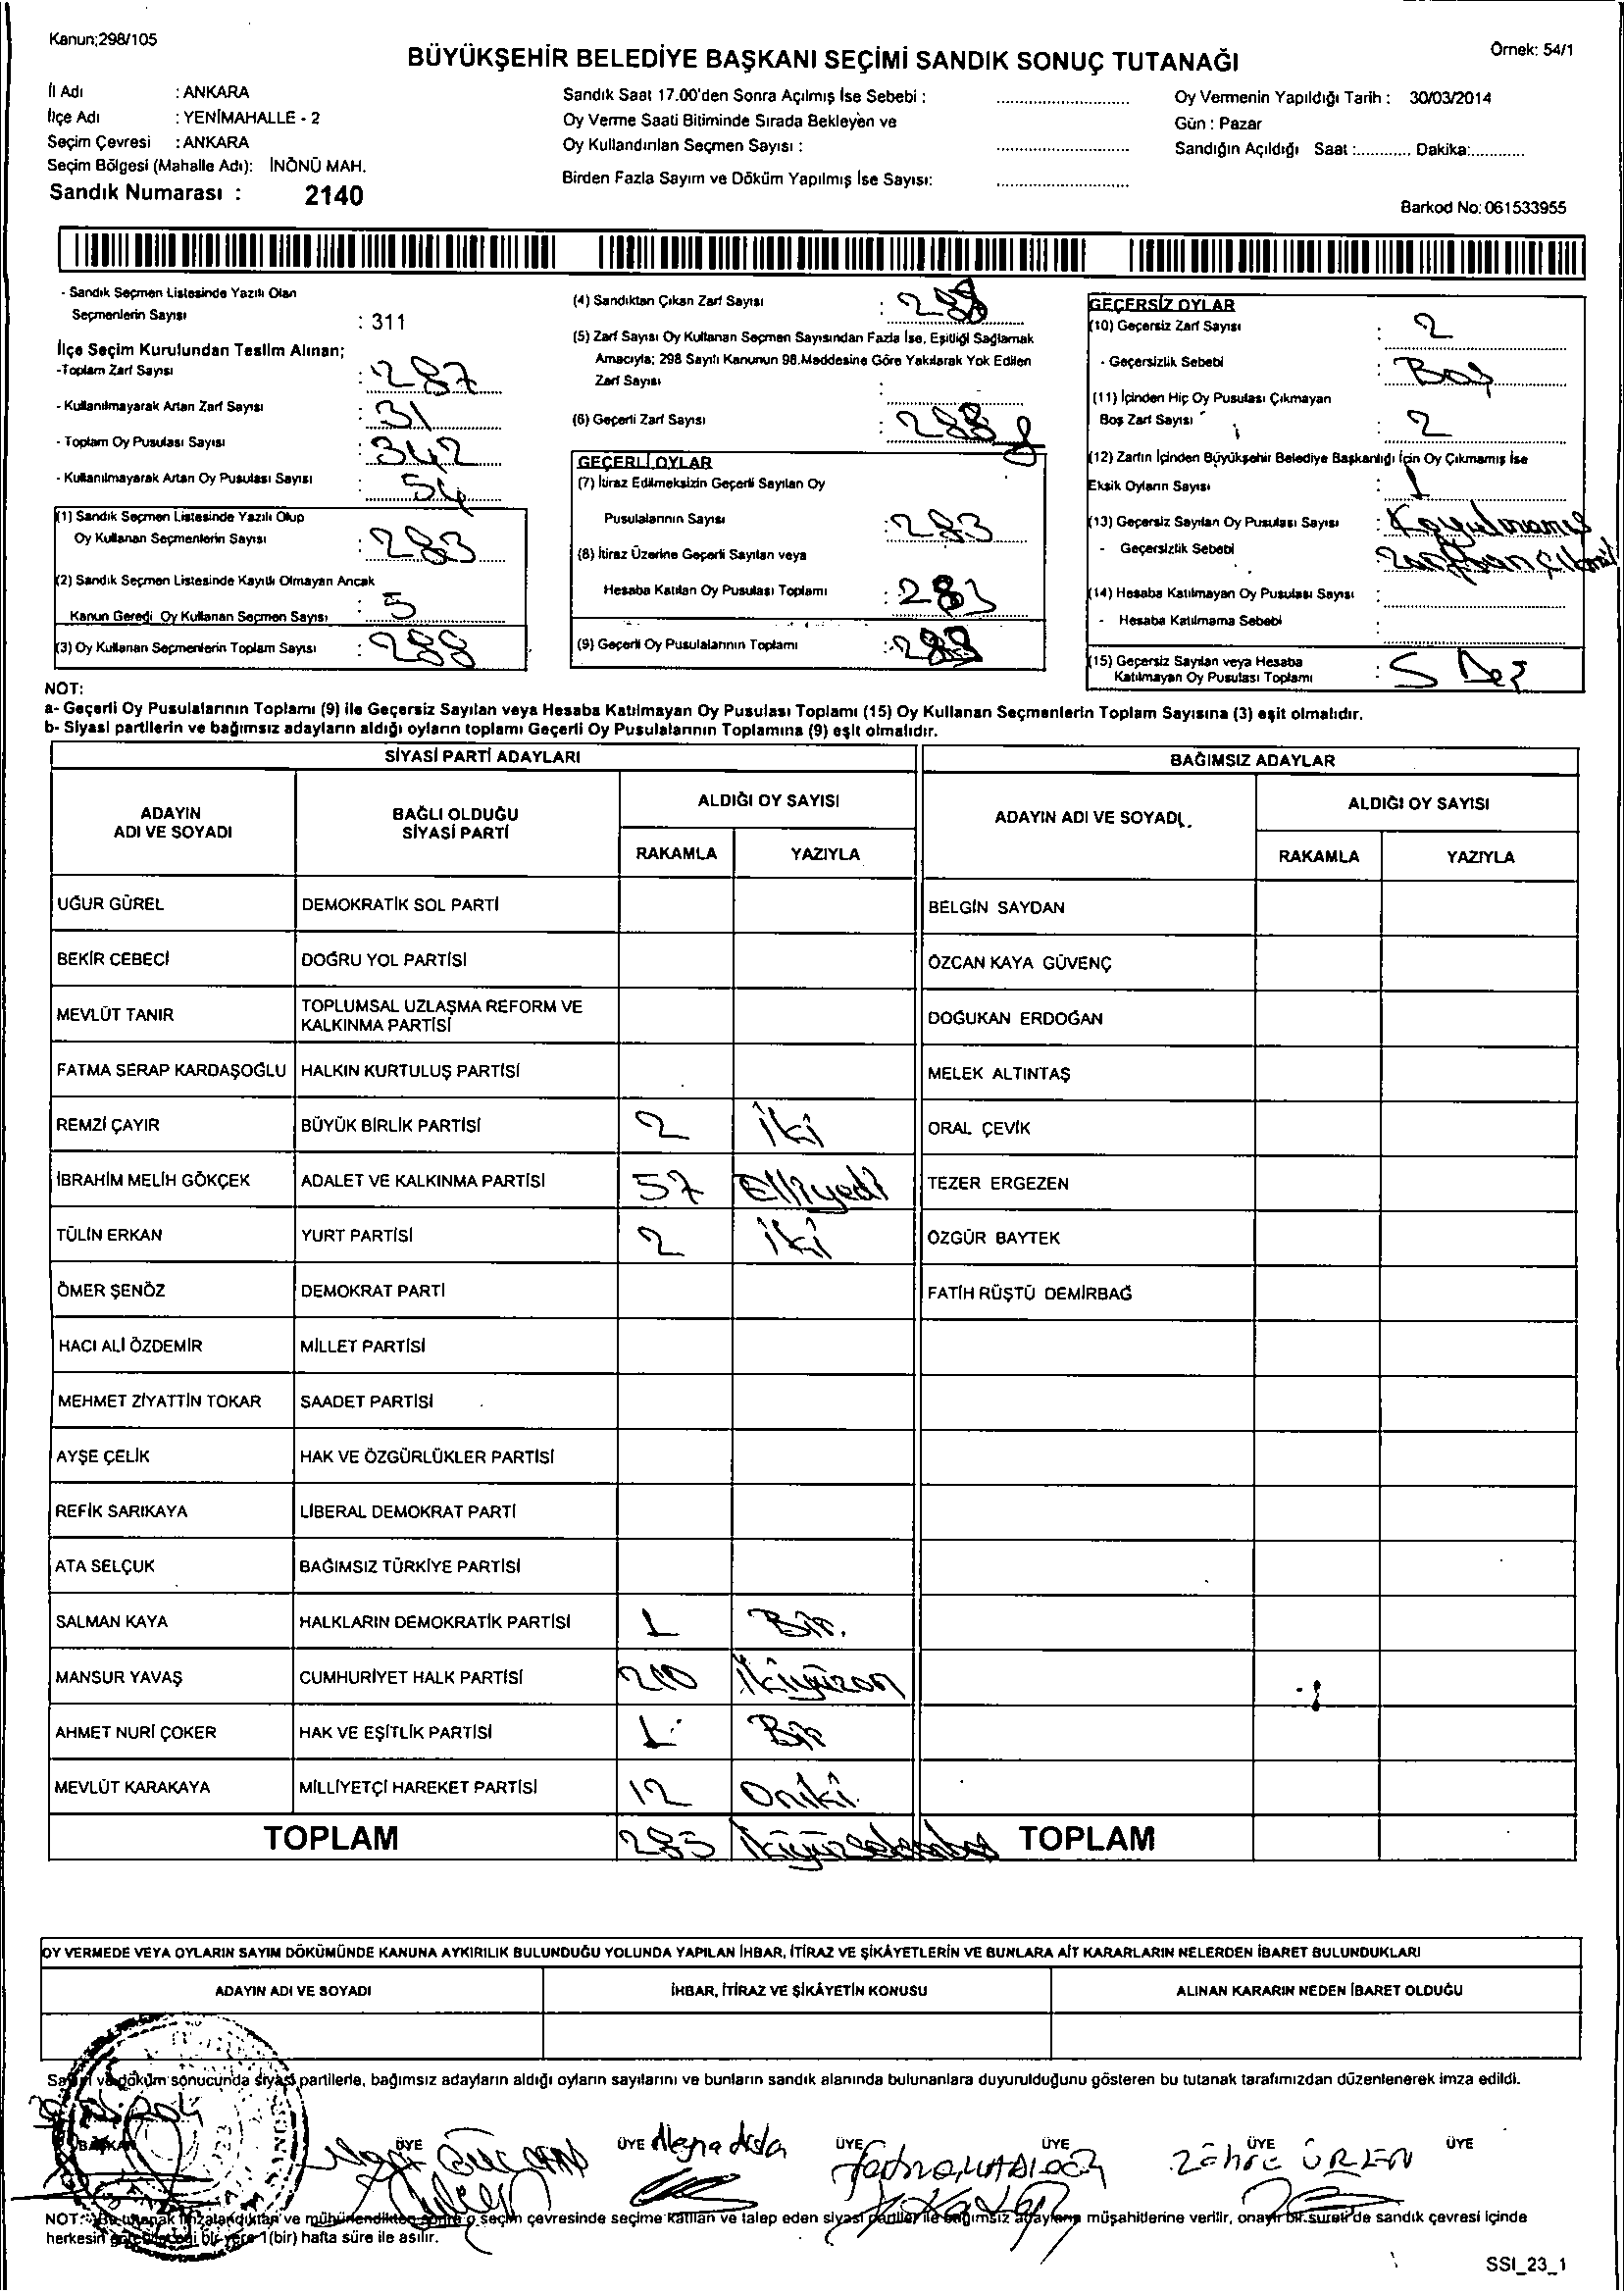 Kanun;298/105
Örnek: 54/1
BÜYÜKŞEHİR BELEDİYE BAŞKANI SEÇİMİ SANDIK SONUÇ TUTANAĞI
İl Adı : ANKARA
İlçe Adı : YENİMAHALLE - 2
Seçim Çevresi : ANKARA
Seçim Bölgesi (Mahalle Adı): İNÖNÜ MAH.
Sandık Numarası : 2140
Sandık Saat 17.00'den Sonra Açılmış İse Sebebi :
Oy Verme Saati Bitiminde Sırada Bekleyen ve
Oy Kullandırılan Seçmen Sayısı :
Birden Fazla Sayım ve Döküm Yapılmış İse Sayısı:
Oy Vermenin Yapıldığı Tarih : 30/03/2014
Gün : Pazar
Sandığın Açıldığı Saat :............ Dakika:............
Barkod No: 061533955
- Sandık Seçmen Listesinde Yazılı Olan
Seçmenlerin Sayısı : 311
İlçe Seçim Kurulundan Teslim Alınan;
-Toplam Zarf Sayısı : 287
- Kullanılmayarak Artan Zarf Sayısı : 31
- Toplam Oy Pusulası Sayısı : 342
- Kullanılmayarak Artan Oy Pusulası Sayısı : 54
(1) Sandık Seçmen Listesinde Yazılı Olup
Oy Kullanan Seçmenlerin Sayısı : 283
(2) Sandık Seçmen Listesinde Kayıtlı Olmayan Ancak
Kanun Gereği Oy Kullanan Seçmen Sayısı : 5
(3) Oy Kullanan Seçmenlerin Toplam Sayısı : 288
(4) Sandıktan Çıkan Zarf Sayısı : 288
(5) Zarf Sayısı Oy Kullanan Seçmen Sayısından Fazla İse, Eşitliği Sağlamak
Amacıyla; 298 Sayılı Kanunun 98.Maddesine Göre Yakılarak Yok Edilen
Zarf Sayısı :
(6) Geçerli Zarf Sayısı :
GEÇERLİ OYLAR
(7) İtiraz Edilmeksizin Geçerli Sayılan Oy
Pusulalarının Sayısı : 283
(8) İtiraz Üzerine Geçerli Sayılan veya
Hesaba Katılan Oy Pusulası Toplamı : 283
(9) Geçerli Oy Pusulalarının Toplamı :
GEÇERSİZ OYLAR
(10) Geçersiz Zarf Sayısı : 2
- Geçersizlik Sebebi : Boş
(11) İçinden Hiç Oy Pusulası Çıkmayan
Boş Zarf Sayısı : 2
(12) Zarfın İçinden Büyükşehir Belediye Başkanlığı İçin Oy Çıkmamış İse
Eksik Oyların Sayısı : 1
(13) Geçersiz Sayılan Oy Pusulası Sayısı : Koyulmamış
- Geçersizlik Sebebi :
(14) Hesaba Katılmayan Oy Pusulası Sayısı :
- Hesaba Katılmama Sebebi :
(15) Geçersiz Sayılan veya Hesaba
Katılmayan Oy Pusulası Toplamı : 5
NOT:
a- Geçerli Oy Pusulalarının Toplamı (9) ile Geçersiz Sayılan veya Hesaba Katılmayan Oy Pusulası Toplamı (15) Oy Kullanan Seçmenlerin Toplam Sayısına (3) eşit olmalıdır.
b- Siyasi partilerin ve bağımsız adayların aldığı oyların toplamı Geçerli Oy Pusulalarının Toplamına (9) eşit olmalıdır.
SİYASİ PARTİ ADAYLARI
BAĞIMSIZ ADAYLAR
ADAYIN
ADI VE SOYADI
BAĞLI OLDUĞU
SİYASİ PARTİ
ALDIĞI OY SAYISI
RAKAMLA YAZIYLA
ADAYIN ADI VE SOYADI
ALDIĞI OY SAYISI
RAKAMLA YAZIYLA
UĞUR GÜREL DEMOKRATİK SOL PARTİ BELGİN SAYDAN
BEKİR CEBECİ DOĞRU YOL PARTİSİ ÖZCAN KAYA GÜVENÇ
MEVLÜT TANIR TOPLUMSAL UZLAŞMA REFORM VE
KALKINMA PARTİSİ DOĞUKAN ERDOĞAN
FATMA SERAP KARDAŞOĞLU HALKIN KURTULUŞ PARTİSİ MELEK ALTINTAŞ
REMZİ ÇAYIR BÜYÜK BİRLİK PARTİSİ 2 iki ORAL ÇEVİK
İBRAHİM MELİH GÖKÇEK ADALET VE KALKINMA PARTİSİ 57 Elliyedi TEZER ERGEZEN
TÜLİN ERKAN YURT PARTİSİ 2 iki ÖZGÜR BAYTEK
ÖMER ŞENÖZ DEMOKRAT PARTİ FATİH RÜŞTÜ DEMİRBAĞ
HACI ALİ ÖZDEMİR MİLLET PARTİSİ
MEHMET ZİYATTİN TOKAR SAADET PARTİSİ
AYŞE ÇELİK HAK VE ÖZGÜRLÜKLER PARTİSİ
REFİK SARIKAYA LİBERAL DEMOKRAT PARTİ
ATA SELÇUK BAĞIMSIZ TÜRKİYE PARTİSİ
SALMAN KAYA HALKLARIN DEMOKRATİK PARTİSİ 1 Bir.
MANSUR YAVAŞ CUMHURİYET HALK PARTİSİ 210 İkiyüzon
AHMET NURİ ÇOKER HAK VE EŞİTLİK PARTİSİ 1 Bir
MEVLÜT KARAKAYA MİLLİYETÇİ HAREKET PARTİSİ 12 Oniki
TOPLAM 285 İkiyüzseksenbeş TOPLAM
OY VERMEDE VEYA OYLARIN SAYIM DÖKÜMÜNDE KANUNA AYKIRILIK BULUNDUĞU YOLUNDA YAPILAN İHBAR, İTİRAZ VE ŞİKÂYETLERİN VE BUNLARA AİT KARARLARIN NELERDEN İBARET BULUNDUKLARI
ADAYIN ADI VE SOYADI İHBAR, İTİRAZ VE ŞİKÂYETİN KONUSU ALINAN KARARIN NEDEN İBARET OLDUĞU
Sayım ve döküm sonucunda siyasi partilerle, bağımsız adayların aldığı oyların sayılarını ve bunların sandık alanında bulunanlara duyurulduğunu gösteren bu tutanak tarafımızdan düzenlenerek imza edildi.
BAŞKAN ÜYE ÜYE ÜYE ÜYE ÜYE ÜYE
Zöhre ÜREN
NOT: Bu tutanak imzalandıktan ve mühürlendikten sonra o seçim çevresinde seçime katılan ve talep eden siyasi partiler ile bağımsız adayların müşahitlerine verilir, onaylı bir sureti de sandık çevresi içinde
herkesin görebileceği bir yere 1(bir) hafta süre ile asılır.
SSI_23_1